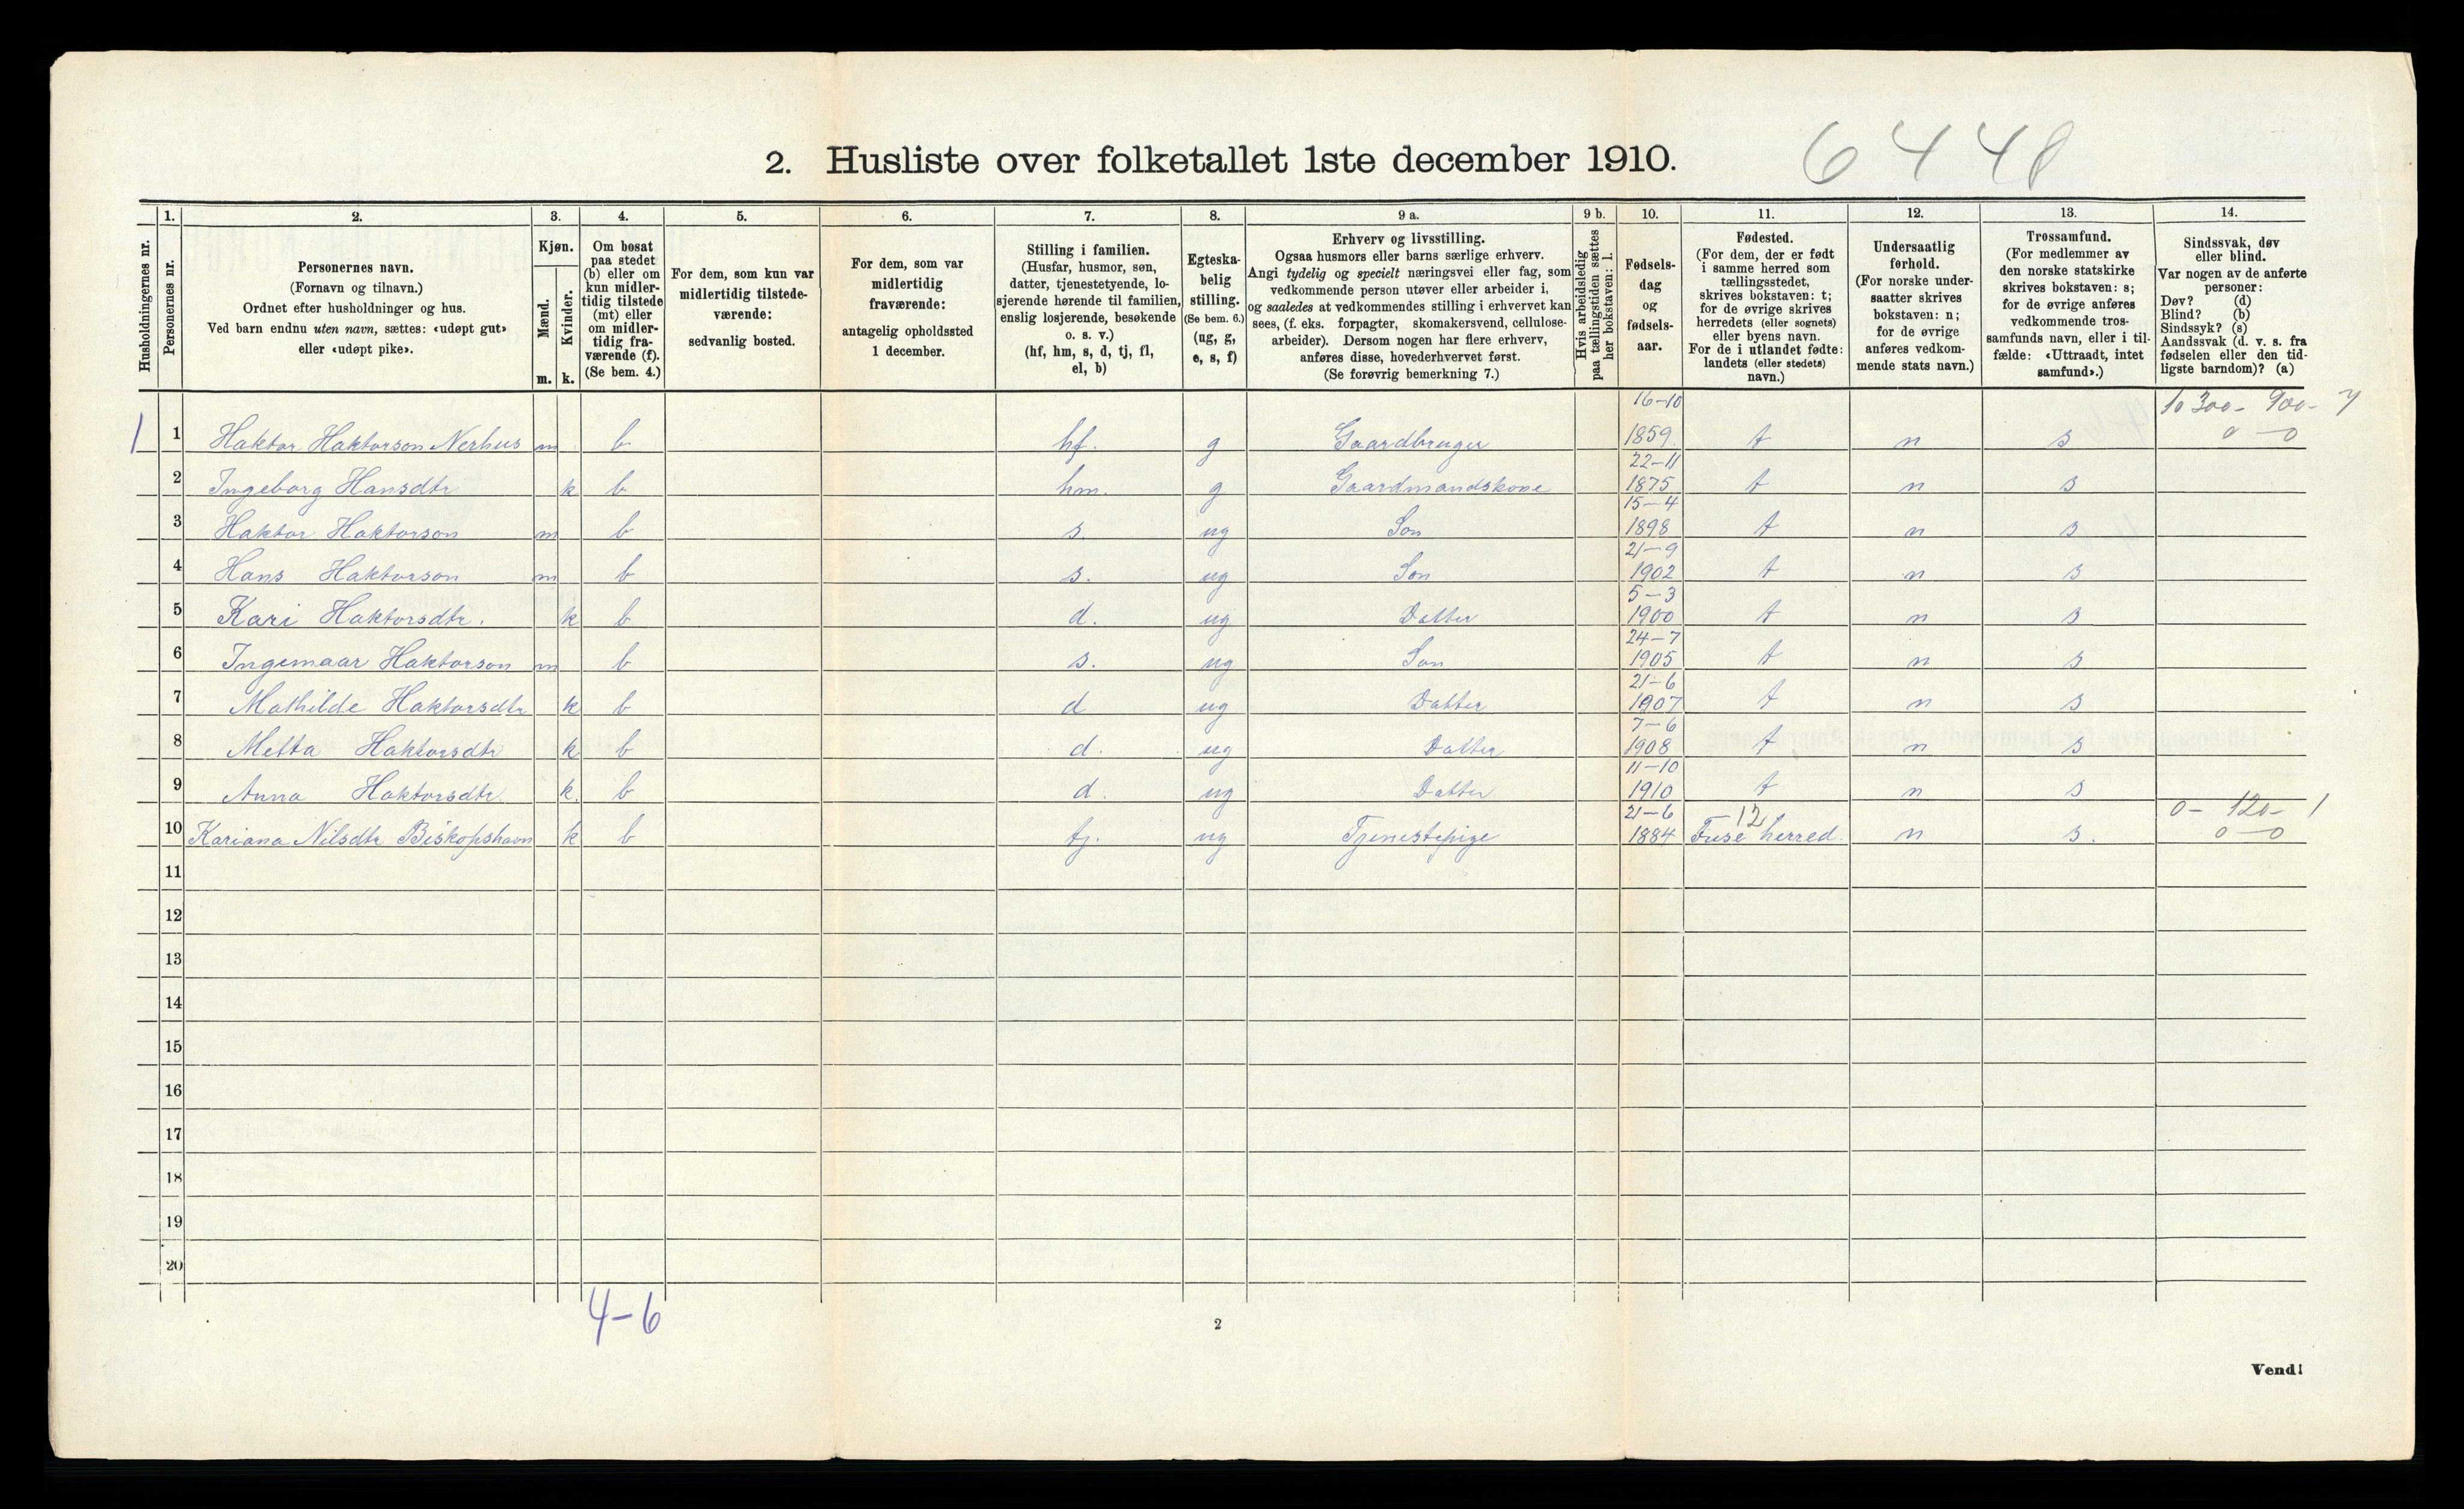 2. Husliste over folketallet 1ste december 1910. 6448
Husholdningernes nr.
1.
Personernes nr.
2.
Personernes navn.
(Fornavn og tilnavn.)
Ordnet efter husholdninger og hus.
Ved barn endnu uten navn, sættes: «udøpt gut»
eller «udøpt pike».
3.
Kjøn.
Mænd.
m.
Kvinder.
k.
4.
Om bosat
paa stedet
(b) eller om
kun midler-
tidig tilstede
(mt) eller
om midler-
tidig fra-
værende (f).
(Se bem. 4.)
5.
For dem, som kun var
midlertidig tilstede-
værende:
sedvanlig bosted.
6.
For dem, som var
midlertidig
fraværende:
antagelig opholdssted
1 december.
7.
Stilling i familien.
(Husfar, husmor, søn,
datter, tjenestetyende, lo-
sjerende hørende til familien,
enslig losjerende, besøkende
o. s. v.)
(hf, hm, s, d, tj, fl,
el, b)
8.
Egteska-
belig
stilling.
(Se bem. 6.)
(ug, g,
e, s, f)
9 a.
Erhverv og livsstilling.
Ogsaa husmors eller barns særlige erhverv.
Angi tydelig og specielt næringsvei eller fag, som
vedkommende person utøver eller arbeider i,
og saaledes at vedkommendes stilling i erhvervet kan
sees, (f. eks. forpagter, skomakersvend, cellulose-
arbeider). Dersom nogen har flere erhverv,
anføres disse, hovederhvervet først.
(Se forøvrig bemerkning 7.)
9 b.
Hvis arbeidsledig
paa tællingstiden sættes
her bokstaven: l.
10.
Fødsels-
dag
og
fødsels-
aar.
11.
Fødested.
(For dem, der er født
i samme herred som
tællingsstedet,
skrives bokstaven: t;
for de øvrige skrives
herredets (eller sognets)
eller byens navn.
For de i utlandet fødte:
landets (eller stedets)
navn.)
12.
Undersaatlig
forhold.
(For norske under-
saatter skrives
bokstaven: n;
for de øvrige
anføres vedkom-
mende stats navn.)
13.
Trossamfund.
(For medlemmer av
den norske statskirke
skrives bokstaven: s;
for de øvrige anføres
vedkommende tros-
samfunds navn, eller i til-
fælde: «Uttraadt, intet
samfund».)
14.
Sindssvak, døv
eller blind.
Var nogen av de anførte
personer:
Døv? (d)
Blind? (b)
Sindssyk? (s)
Aandssvak (d. v. s. fra
fødselen eller den tid-
ligste barndom)? (a)
16-10 10300- 900- 7
1 1 Haktor Haktorson Nerhus m b hf. g Gaardbruger 1859 t n s 0-0
22-11
2 Ingeborg Hansdtr k b hm. g Gaardmandskone 1875 t n s
15-4
3 Haktor Haktorson m b s. ug Son 1898 t n s
21-9
4 Hans Haktorson m b s. ug Son 1902 t n s
5-3
5 Kari Haktorsdtr. k b d. ug Datter 1900 t n s
24-7
6 Ingemaar Haktorson m b s. ug Son 1905 t n s
21-6
7 Mathilde Haktorsdtr k b d ug Datter 1907 t n s
7-6
8 Metta Haktorsdtr k b d. ug Datter 1908 t n s
11-10
9 Anna Haktorsdtr. k. b d. ug Datter 1910 t n s
21-6 12 0- 120- 1
10 Kariana Nilsdtr Biskopshavn k b tj. ug Tjenestepige 1884 Fuse herred. n s. 0-0
11
12
13
14
15
16
17
18
19
20
4-6
2
Vend!